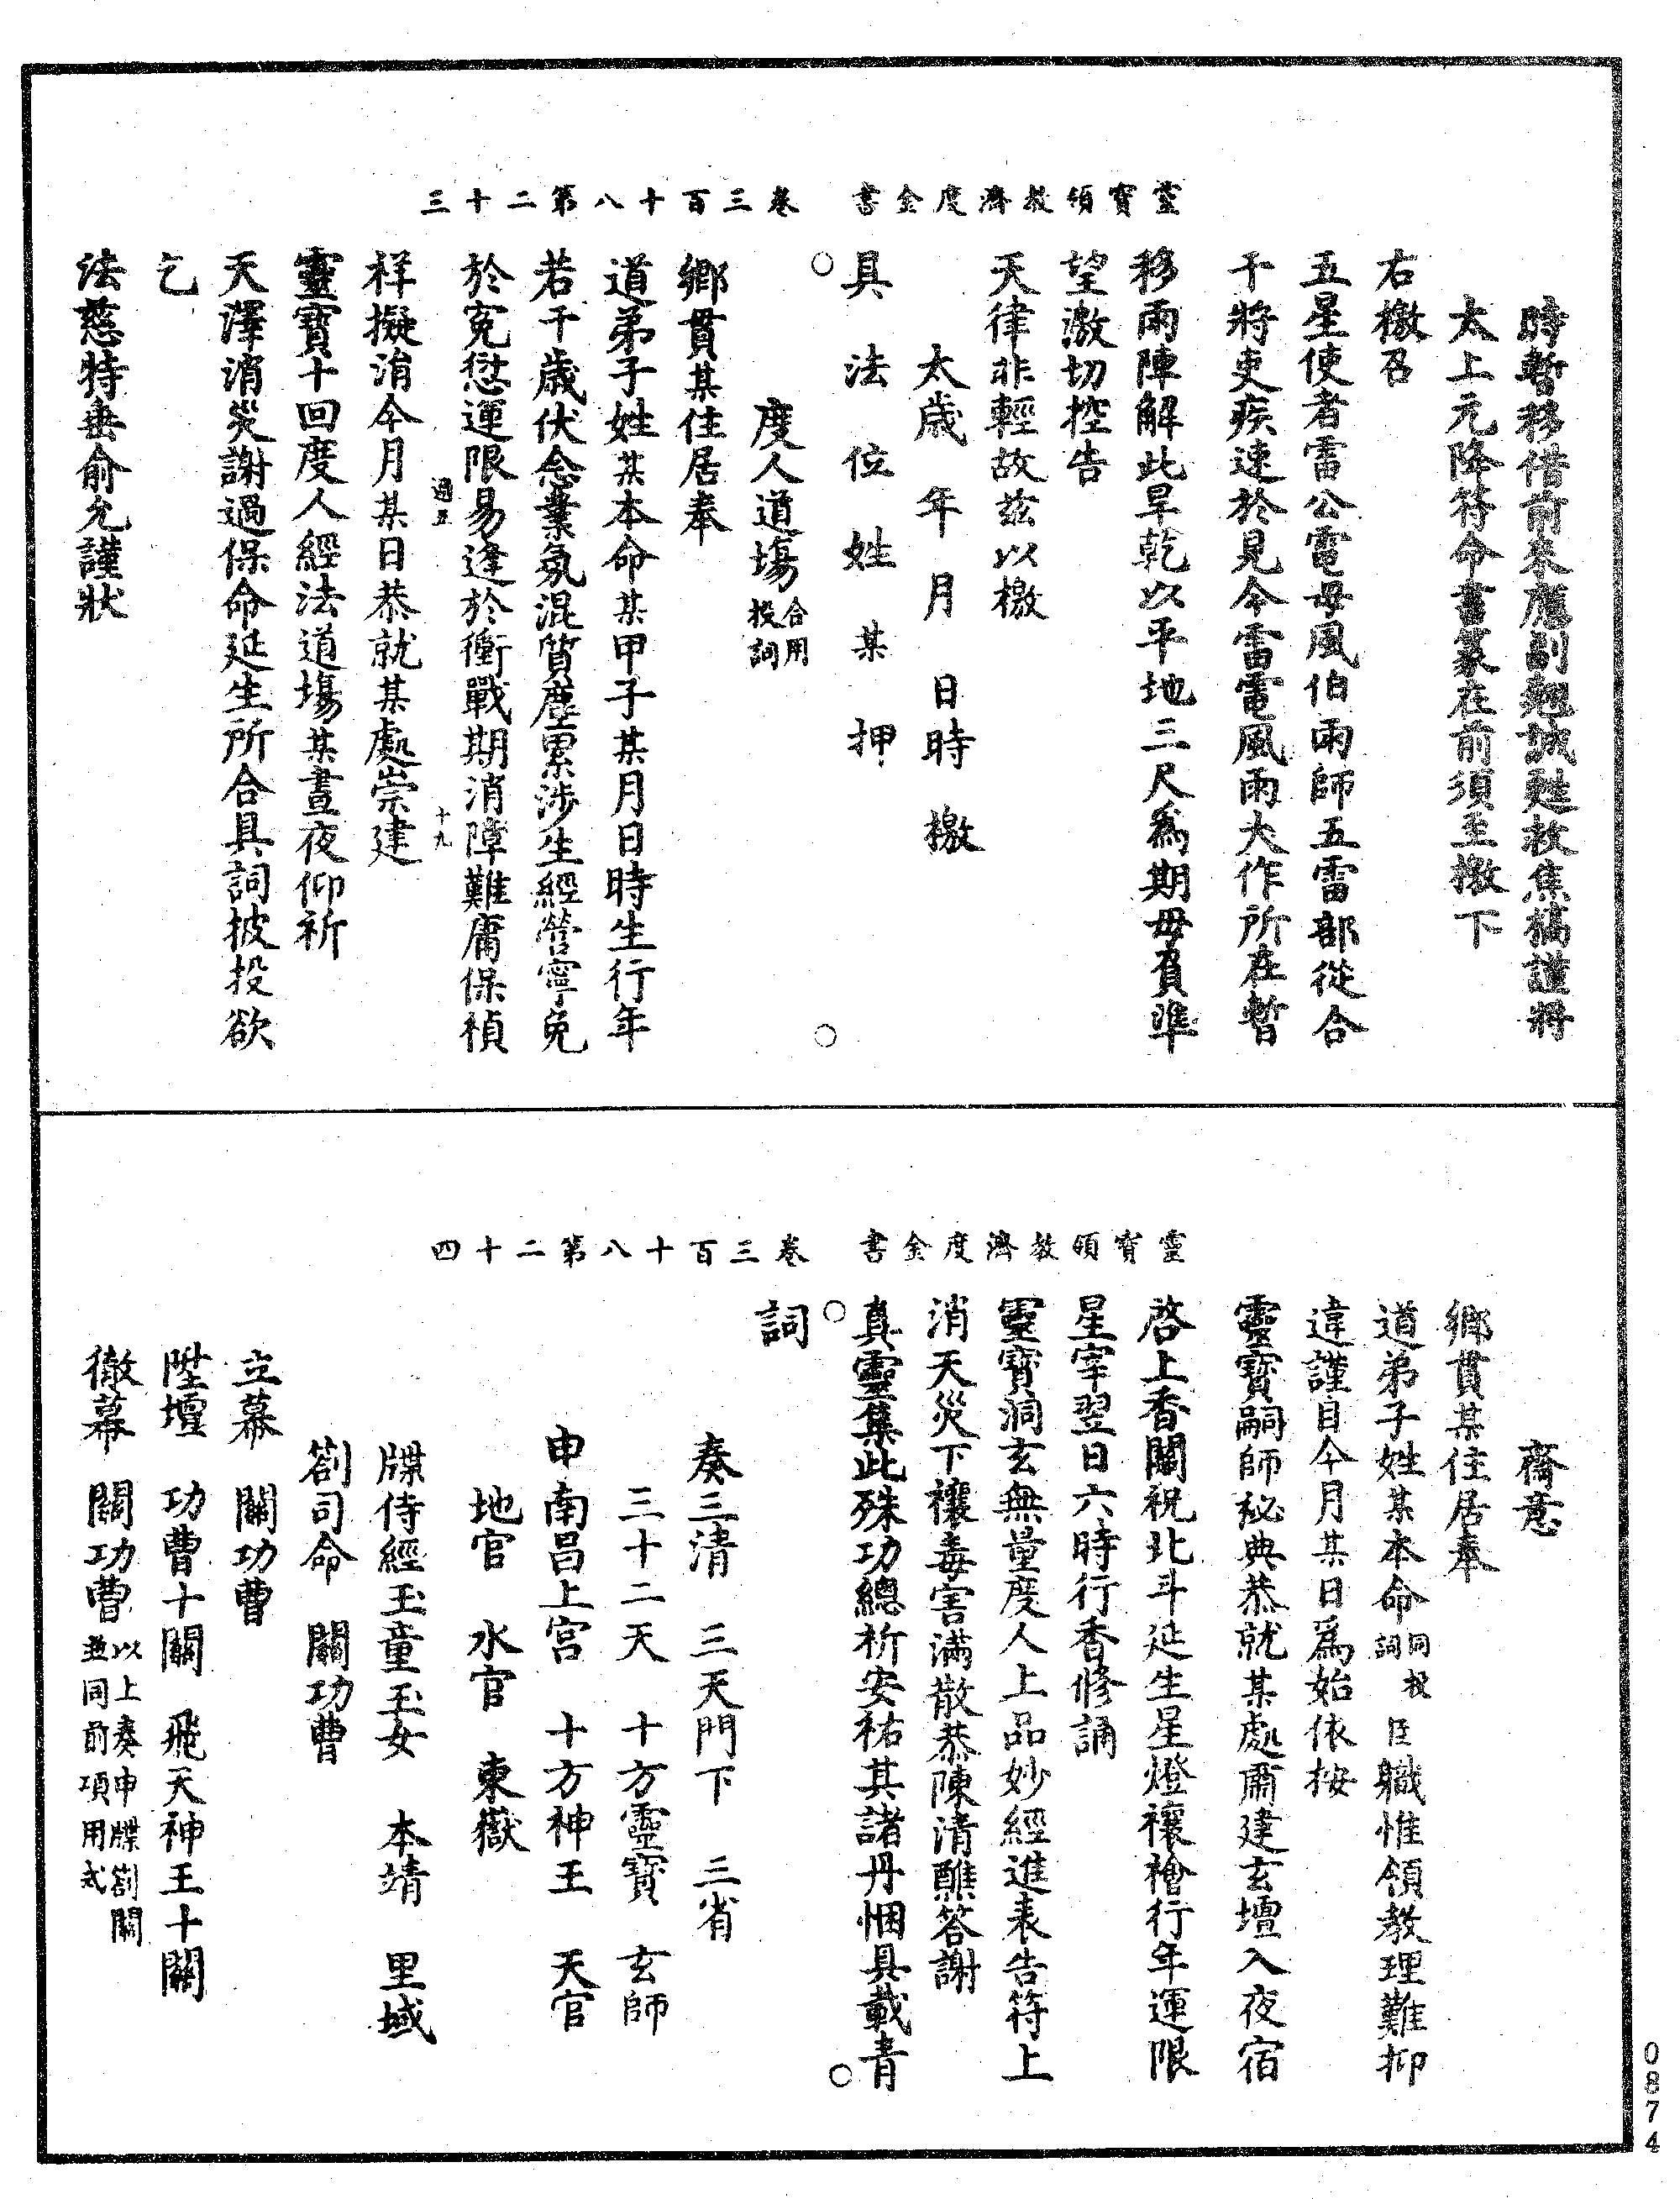 靈寶領教濟度金書　卷三百十八第二十三
時暫移借前來應副翹誠甦救焦槁謹將
太上元降符命書篆在前須至檄下
右檄召
五星使者雷公電母風伯雨師五雷部從合
干將吏疾速於見今雷電風雨大作所在暫
移雨陣解此旱乾以平地三尺爲期毋負準
望激切控告
天律非輕故茲以檄
太歲　年　月　日時　檄
具　法　位　姓　某　押
○　○
度人道場合用投詞
鄉貫某住居奉
道弟子姓某本命某甲子某月日時生行年
若干歲伏念業氛混質塵累涉生經營寧免
於寃愆運限易逢於衝戰期消障難庸保禎
過五　十九
祥擬涓今月某日恭就某處崇建
靈寶十回度人經法道場某晝夜仰祈
天澤消災謝過保命延生所合具詞披投欲
乞
法慈特垂俞允謹狀
靈寶領教濟度金書　卷三百十八第二十四
齋意
鄉貫某住居奉
道弟子姓某本命同投詞臣職惟領教理難抑
違謹自今月某日爲始依按
靈寶嗣師秘典恭就某處肅建玄壇入夜宿
啓上香關祝北斗延生星燈禳禬行年運限
星宰翌日六時行香修誦
靈寶洞玄無量度人上品妙經進表告符上
消天災下禳毒害滿散恭陳清醮答謝
真靈集此殊功總祈安祐其諸丹悃具載青
○　○
詞
奏三清　三天門下　三省
三十二天　十方靈寶　玄師
申南昌上宮　十方神王　天官
地官　水官　東嶽
牒侍經玉童玉女　本靖　里域
劄司命　關功曹
立幕　關功曹
陞壇　功曹十關　飛天神王十關
徹幕　關功曹以上奏申牒劄關並同前項用式
0874